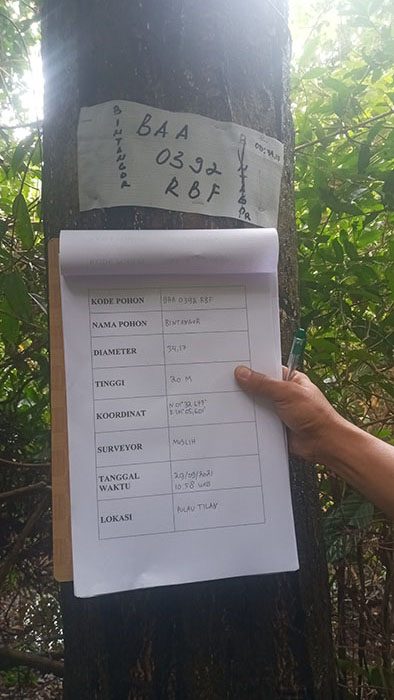 BINTANGOR
BAA
0392
RBF
KODE POHON BAA 0392 RBF
NAMA POHON BINTANGOR
DIAMETER 34,17
TINGGI 20 M
KOORDINAT
SURVEYOR MUSLIH
TANGGAL WAKTU 29/09/2021
10:58 WIB
LOKASI PULAU TILAN